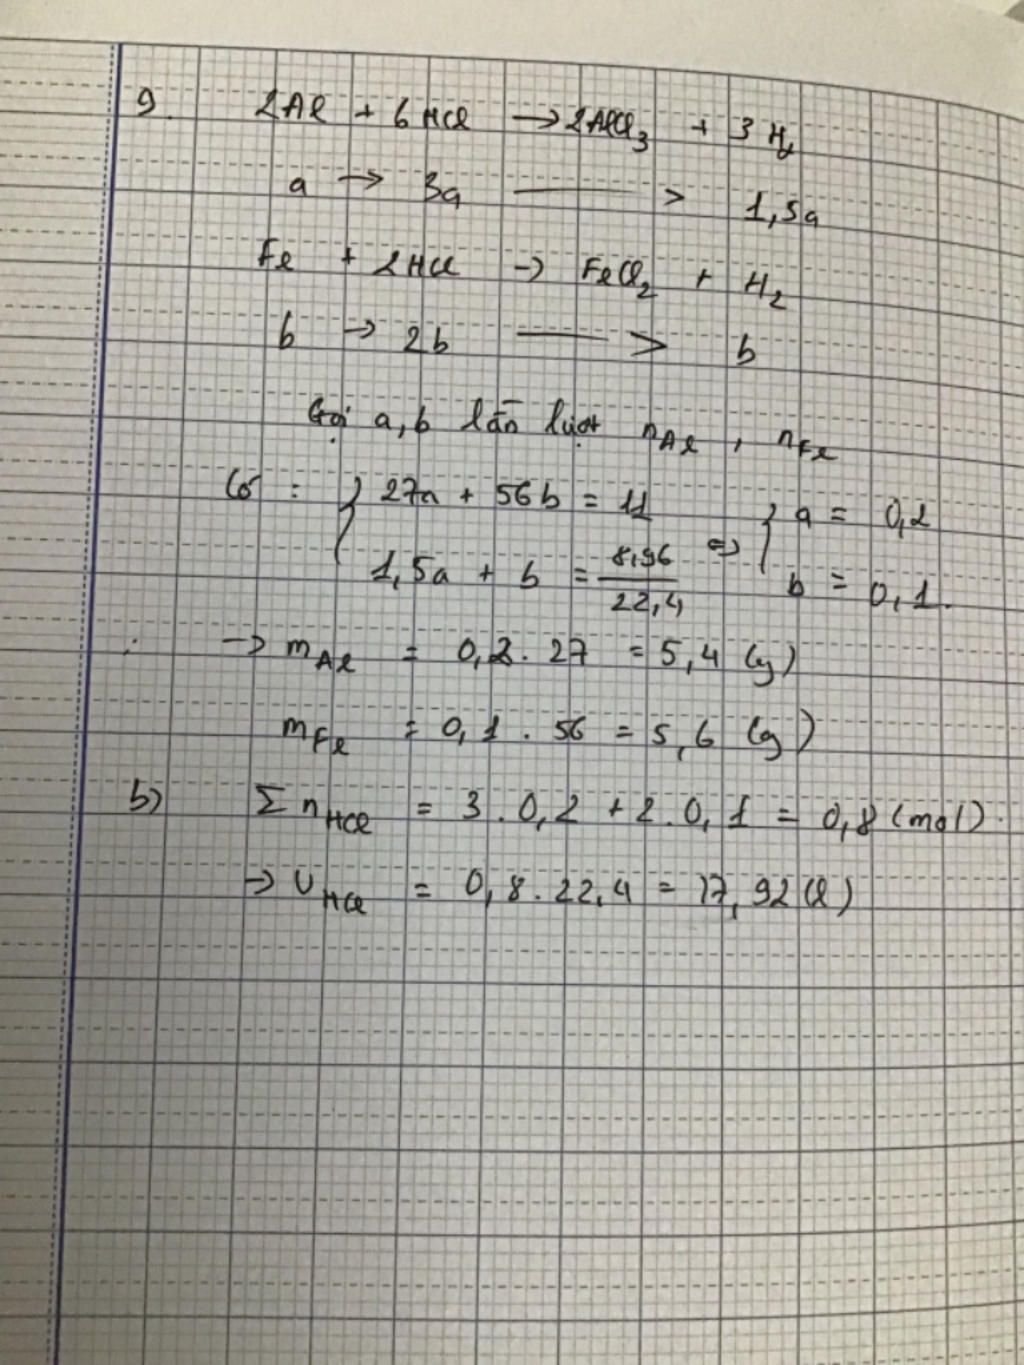 9. 2Al + 6HCl → 2AlCl₃ + 3H₂
a → 3a ⟶ 1,5a
Fe + 2HCl → FeCl₂ + H₂
b → 2b ⟶ b
Gọi a, b lần lượt nAl, nFe
Có : { 27a + 56b = 11
1,5a + b = 8,96/22,4 ⇔ { a = 0,2
b = 0,1.
→ mAl = 0,2. 27 = 5,4 (g)
mFe = 0,1 . 56 = 5,6 (g)
b) Σ nHCl = 3 . 0,2 + 2 . 0,1 = 0,8 (mol).
→ VHCl = 0,8 . 22,4 = 17,92 (l)